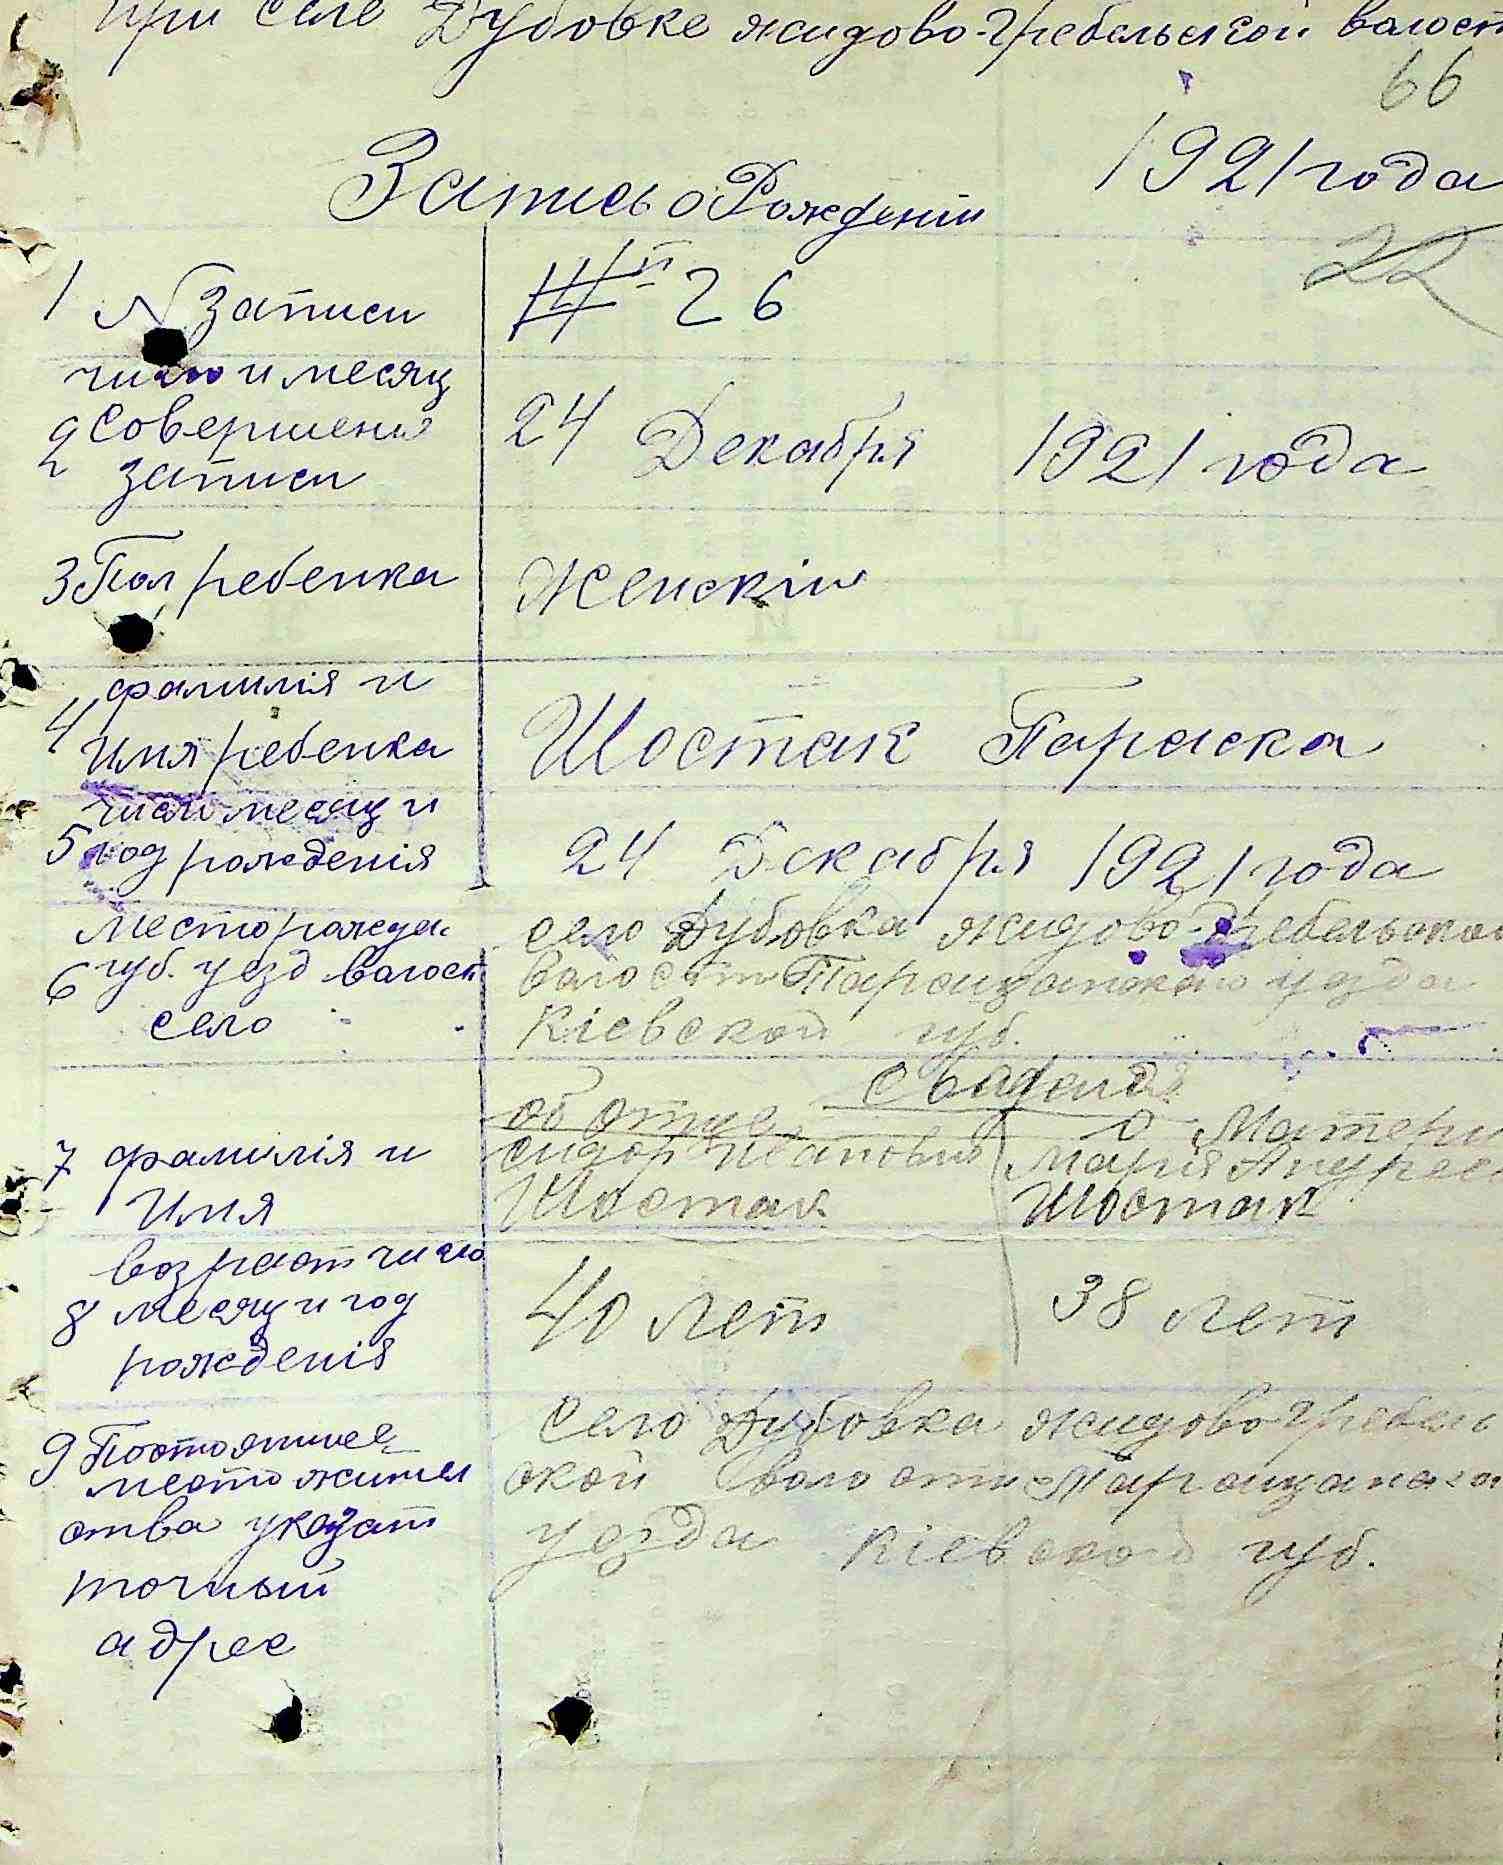 при селе Дубовке жидово-Гребельской волост
66
1921 года
Запись о Рожденіи
22
1 N Записи
№ 26
число и месяц
2 Совершения
записи
24 Декабря 1921 года
3 Пол ребенка
Женскій
фамилія и
4 Имя ребенка
Шостак Параска
число месяц и
5 год рожденія
24 Декабря 1921 года
место рожде.
6 губ. уезд волост
село
село Дубовка жидово-Гребельской
волости Таращанскаго уезда
Кіевской губ.
Сведения
об отце
о Матери
7 фамилія и
Имя
Сидор Иванович
Шостак
Марія Андрее
Шостак
возраст число
8 месяц и год
рожденія
40 лет
38 лет
9 Постоянное
место жител
ства указат
точный
адрес
Село Дубовка жидово Гребель
ской волости Таращанска
уезда Кіевской губ.